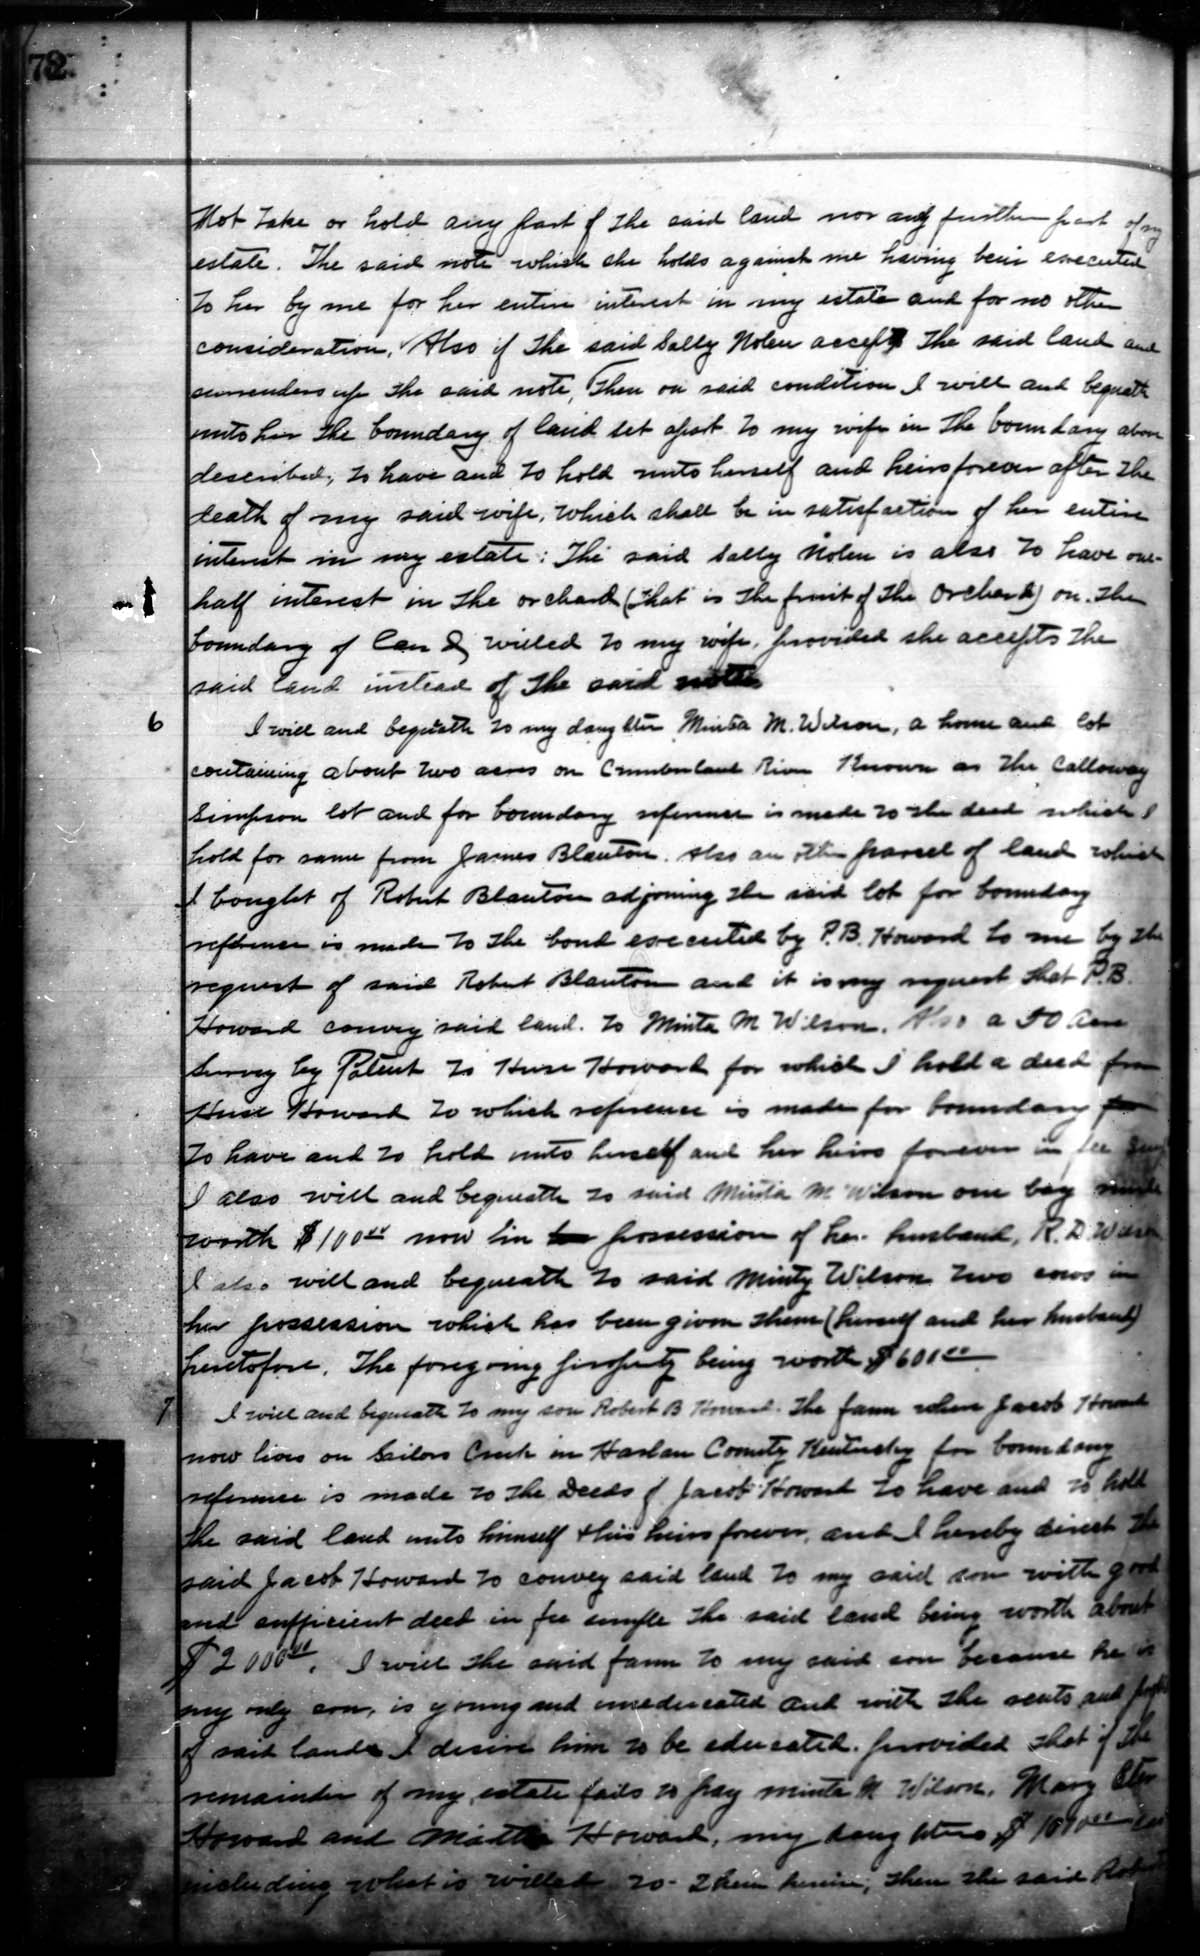 72.
Not take or hold any part of the said land nor any further part of my
estate. The said note which she holds against me having bein executed
to her by me for her entire interest in my estate and for no other
consideration, Also if the said Sally Nolen accepts the said land and
surrenders up the said note, Then on said condition I will and bequath
unto her the boundary of land set apart to my wife in the boundary above
described; to have and to hold unto herself and heirs forever after the
death of my said wife, which shall be in satisfaction of her entire
interest in my estate: The said Sally Nolen is also to have one-
half interest in the orchard (that is the fruit of the Orchard) on the
boundary of land willed to my wife, provided she accepts the
said land instead of the said note
6 I will and bequath to my daughter Minta M. Wilson, a home and lot
containing about two acres on Cumberland River Known as the Calloway
Simpson lot and for boundary reference is made to the deed which I
hold for same from James Blanton. Also an other parcel of land which
I bought of Robert Blanton adjoining the said lot for boundary
reference is made to the bond executed by P.B. Howard to me by the
request of said Robert Blanton and it is my request that P.B.
Howard convey said land. to Minta M Wilson. Also a 50 acre
Survey by Patent to Huse Howard for which I hold a deed from
Huse Howard to which reference is made for boundary
to have and to hold unto herself and her heirs forever in fee
I also will and bequeath to said Minta M Wilson one bay
worth $100.00 now in possession of her husband, R.D. Wilson
I also will and bequeath to said Minty Wilson two cows in
her possession which has been given them (herself and her husband)
heretofore. The foregoing property being worth $600.00
7 I will and bequeath to my son Robert B Howard. The farm where Jacob Howard
now lives on Sailors Creek in Harlan County Kentucky for boundary
reference is made to the Deeds of Jacob Howard to have and to hold
the said land unto himself & his heirs forever, and I hereby direct the
said Jacob Howard to convey said land to my said son with good
and sufficient deed in fee simple the said land being worth about
$2000.00. I will the said farm to my said son because he is
my only son, is young and uneducated and with the rents and
of said lands I desire him to be educated. provided that if the
remainder of my estate fails to pay Minta M Wilson, Mary
Howard and Howard, my daughters
including what is willed to them herein, then the said Robert